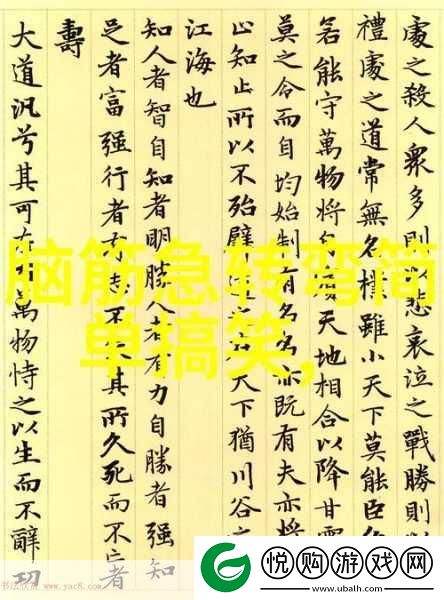 處之殺人衆多則以悲哀泣之戰勝則以
禮處之道常無名樸雖小天下莫能臣
若能守萬物將自賓天地相合以降甘
莫之令而自均始制有名名亦既有夫亦將
止知止所以不殆譬道之在天下猶川谷
江海也
知人者智自知者明勝人者有力自勝者強知
足者富強行者有志不失其所久死而不亡者
壽
大道汎兮其可左右萬物恃之以生而不辭功
脑筋急转弯简
单搞笑,
书法欣赏 www.yac8.com
悦购游戏网
www.ubalh.com